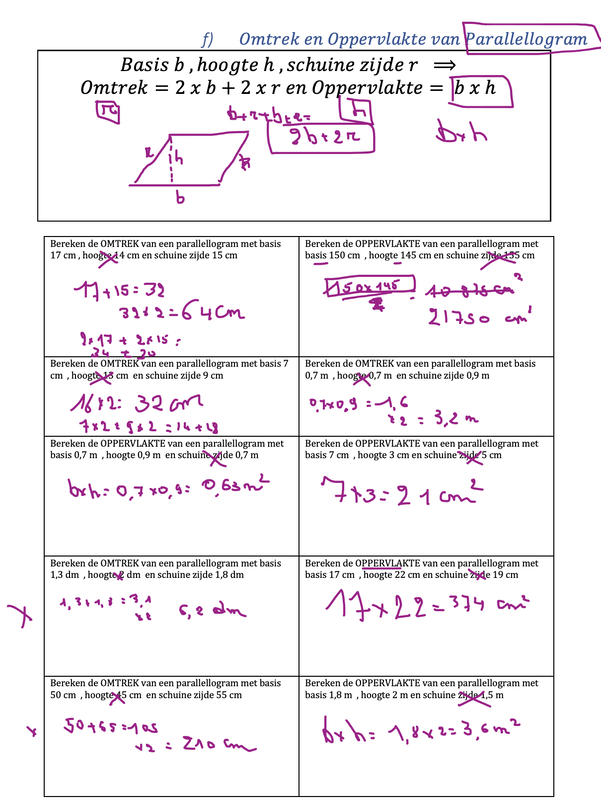 f) Omtrek en Oppervlakte van Parallellogram
Basis b , hoogte h , schuine zijde r ⟹
Omtrek = 2 x b + 2 x r en Oppervlakte = b x h
r
b+r+b+r=
h
2b+2r
b×h
r
h
r
b
Bereken de OMTREK van een parallellogram met basis
17 cm , hoogte 14 cm en schuine zijde 15 cm
17+15=32
32×2=64cm
2×17 + 2×15 =
34 + 30
Bereken de OPPERVLAKTE van een parallellogram met
basis 150 cm , hoogte 145 cm en schuine zijde 155 cm
150×145
2
10 875 cm²
21750 cm²
Bereken de OMTREK van een parallellogram met basis 7
cm , hoogte 13 cm en schuine zijde 9 cm
16×2= 32 cm
7×2+9×2=14+18
Bereken de OMTREK van een parallellogram met basis
0,7 m , hoogte 0,7 m en schuine zijde 0,9 m
0,7×0,9=1,6
×2 = 3,2 m
Bereken de OPPERVLAKTE van een parallellogram met
basis 0,7 m , hoogte 0,9 m en schuine zijde 0,7 m
b×h= 0,7×0,9= 0,63m²
Bereken de OPPERVLAKTE van een parallellogram met
basis 7 cm , hoogte 3 cm en schuine zijde 5 cm
7×3=21cm²
Bereken de OMTREK van een parallellogram met basis
1,3 dm , hoogte 2 dm en schuine zijde 1,8 dm
1,3+1,8=3,1
×2
6,2 dm
Bereken de OPPERVLAKTE van een parallellogram met
basis 17 cm , hoogte 22 cm en schuine zijde 19 cm
17×22=374 cm²
Bereken de OMTREK van een parallellogram met basis
50 cm , hoogte 45 cm en schuine zijde 55 cm
50+55=105
×2 = 210 cm
Bereken de OPPERVLAKTE van een parallellogram met
basis 1,8 m , hoogte 2 m en schuine zijde 1,5 m
b×h= 1,8×2=3,6m²